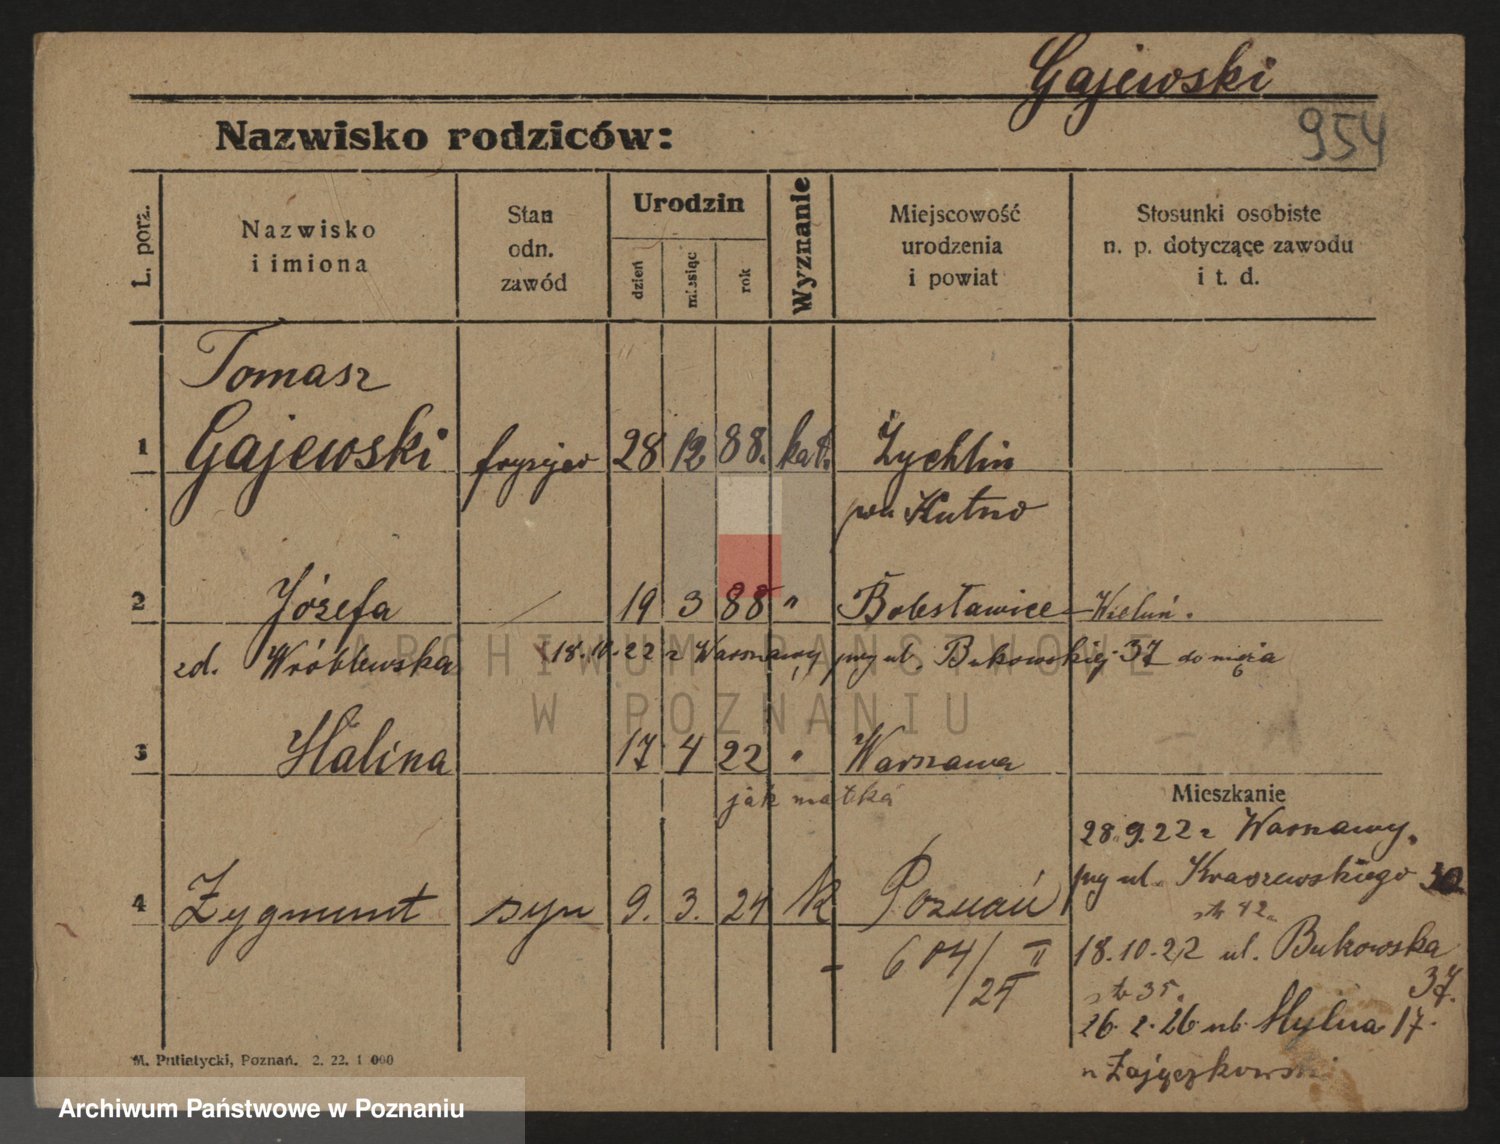 Gajewski
954
Nazwisko rodziców:
L. porz.
Nazwisko
i imiona
Stan
odn.
zawód
Urodzin
dzień
miesiąc
rok
Wyznanie
Miejscowość
urodzenia
i powiat
Stosunki osobiste
n. p. dotyczące zawodu
i t. d.
Tomasz
1 Gajewski fryzjer 28 12 88. kat. Żychlin
pow Kutno
2 Józefa / 19 3 88 " Bolesławice – Wieluń.
zd. Wróblewska 18.10.22 z Warszawy przy ul. Bukowskiej 37 do męża
3 Halina 17 4 22 " Warszawa
jak matka
Mieszkanie
28.9.22 z Warszawy
przy ul. Kraszewskiego
str 42
4 Zygmunt syn 9. 3. 24 k Poznań
604/24 II
18.10.22 ul. Bukowska
37.
str 35.
26.2.26 ul. Mylna 17.
u Zajączkowski
M. Putiatycki, Poznań. 2. 22. 1 000
ARCHIWUM PAŃSTWOWE
W POZNANIU
Archiwum Państwowe w Poznaniu